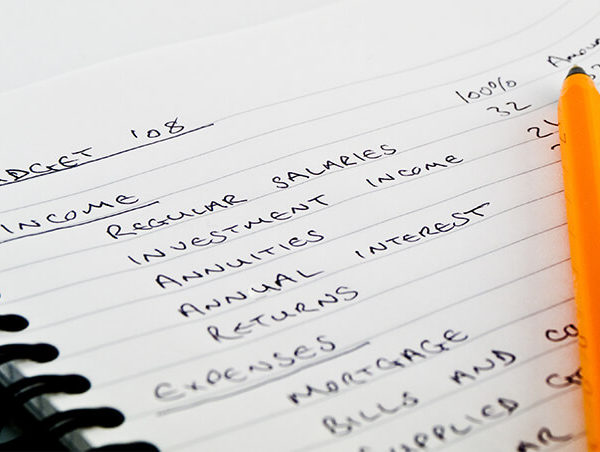 UDGET '08
100% Amoun
INCOME
REGULAR SALARIES 32
INVESTMENT INCOME
ANNUITIES
ANNUAL INTEREST
RETURNS
EXPENSES
MORTGAGE
BILLS AND CO
SUPPLIED
AR